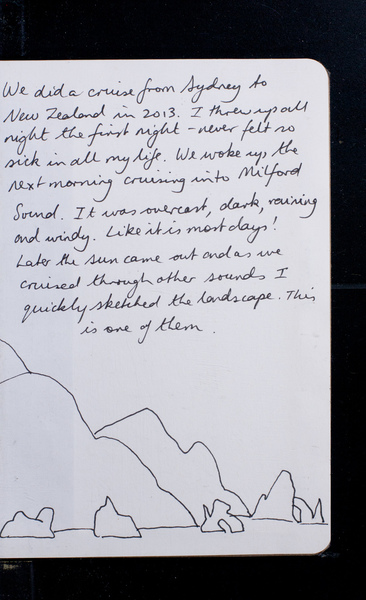 We did a cruise from Sydney to
New Zealand in 2013. I threw up all
night the first night - never felt so
sick in all my life. We woke up the
next morning cruising into Milford
Sound. It was overcast, dark, raining
and windy. Like it is most days!
Later the sun came out and as we
cruised through other sounds I
quickly sketched the landscape. This
is one of them.